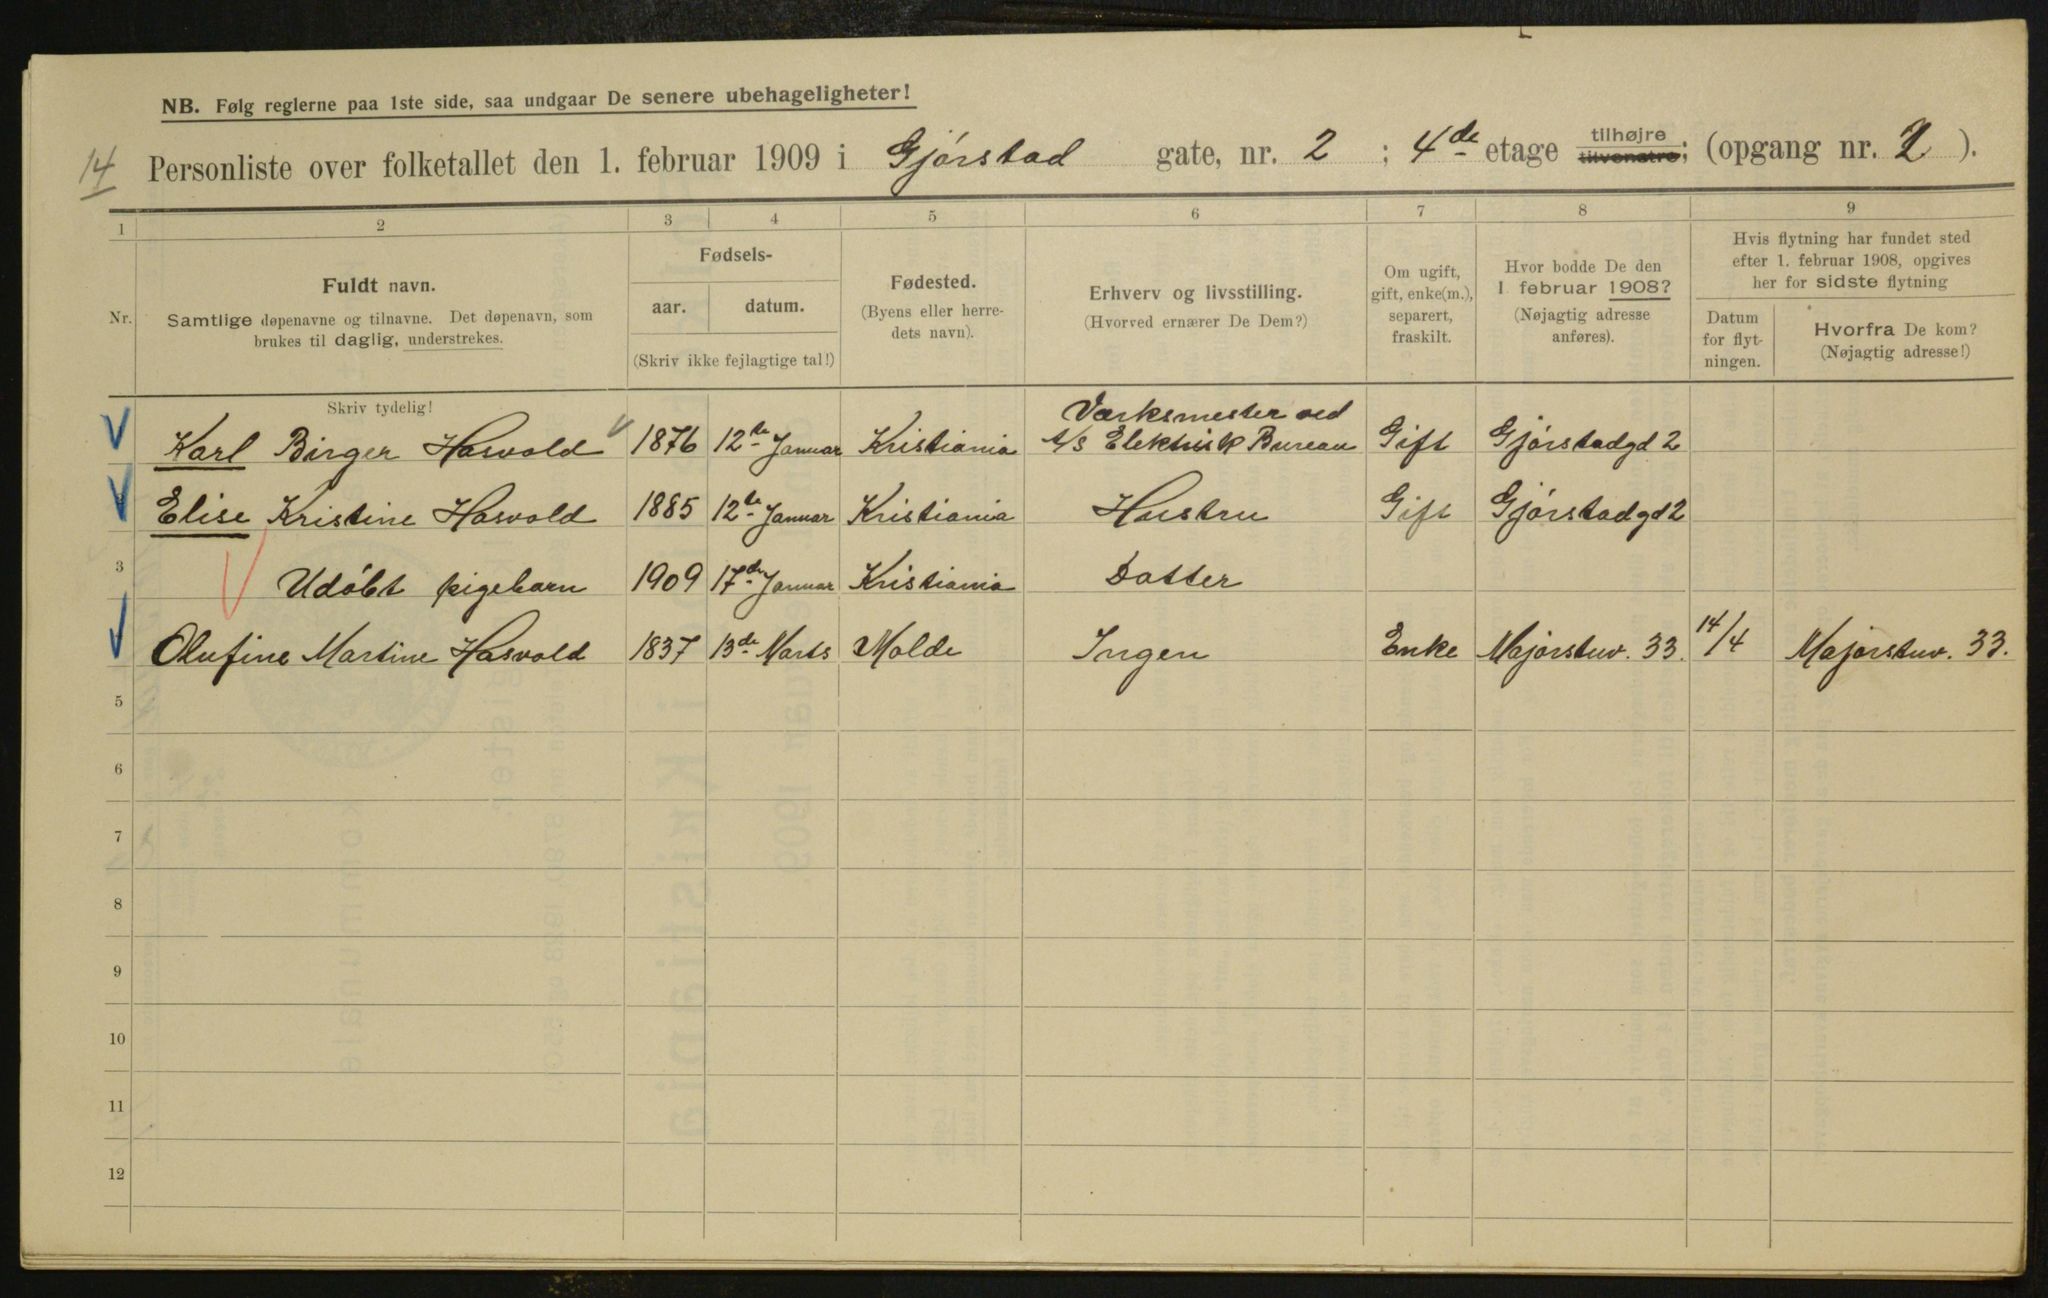 NB. Følg reglerne paa 1ste side, saa undgaar De senere ubehageligheter!
14 Personliste over folketallet den 1. februar 1909 i Gjörstad gate, nr. 2 ; 4de etage tilhøjre tilvenstre; (opgang nr. 2 ).
1 2 3 4 5 6 7 8 9
Nr.
Fuldt navn.
Samtlige døpenavne og tilnavne. Det døpenavn, som
brukes til daglig, understrekes.
Fødsels-
aar. datum.
(Skriv ikke fejlagtige tal!)
Fødested.
(Byens eller herre-
dets navn).
Erhverv og livsstilling.
(Hvorved ernærer De Dem?)
Om ugift,
gift, enke(m.),
separert,
fraskilt.
Hvor bodde De den
1 februar 1908?
(Nøjagtig adresse
anføres).
Hvis flytning har fundet sted
efter 1. februar 1908, opgives
her for sidste flytning
Datum
for flyt-
ningen.
Hvorfra De kom?
(Nøjagtig adresse!)
Skriv tydelig!
Karl Birger Hasvold 1876 12te Januar Kristiania Værksmester ved A/S Elektrisk Bureau Gift Gjörstadgd 2
Elise Kristine Hasvold 1885 12te Januar Kristiania Hustru Gift Gjörstadgd 2
3 Udöbt pigebarn 1909 17de Januar Kristiania Datter
Olufine Martine Hasvold 1837 13de Marts Molde Ingen Enke Majorstuv. 33. 14/4 Majorstuv. 33.
5
6
7
8
9
10
11
12